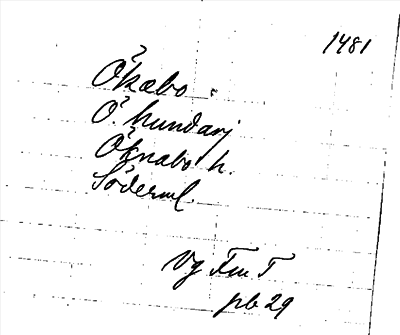 1481
Ökebo
Ö. hundari
Öknabo h.
Söderml.
Vg FmT
pb 29